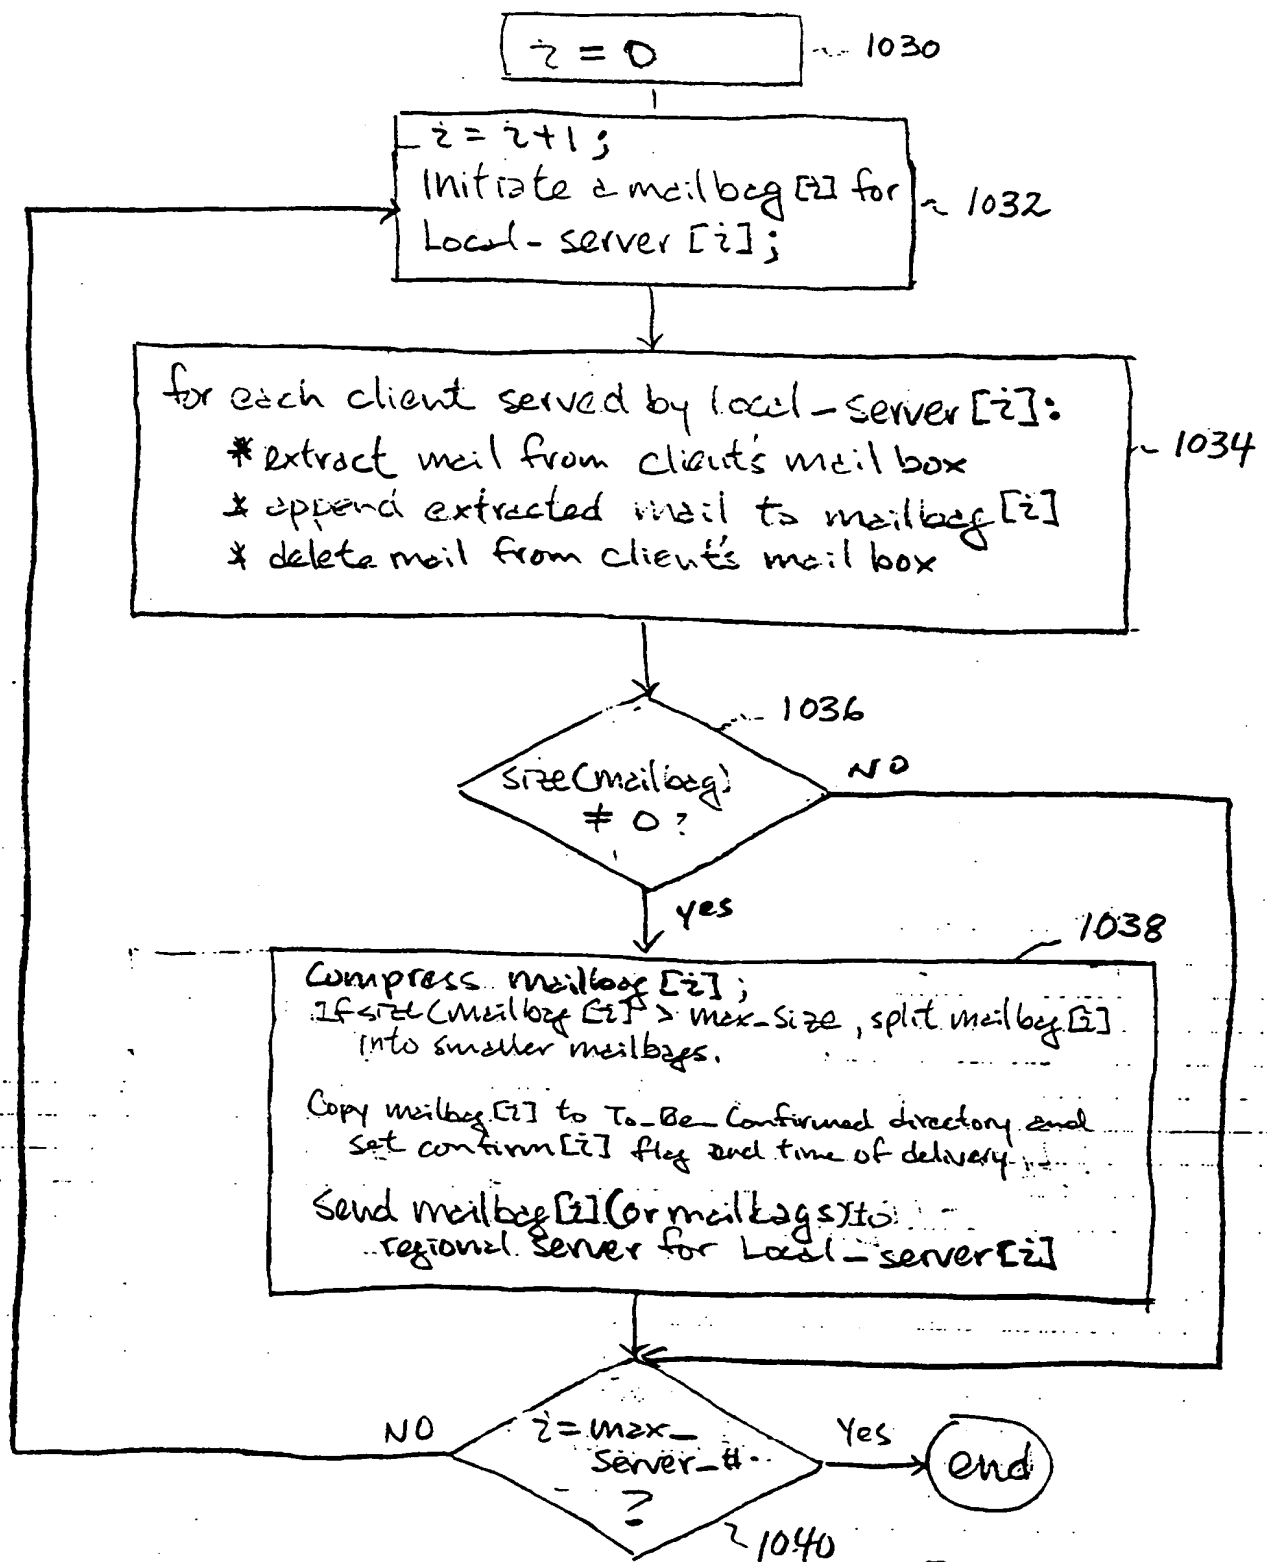 i = 0
1030
i = i+1 ;
Initiate a mailbag [i] for
Local-server [i];
1032
for each client served by local-server [i]:
* extract mail from client's mail box
* append extracted mail to mailbag [i]
* delete mail from client's mail box
1034
1036
size (mailbag)
≠ 0 ?
NO
yes
1038
Compress mailbag [i] ;
If size (mailbag [i] > max_size, split mailbag [i]
into smaller mailbags.
Copy mailbag [i] to To_Be_Confirmed directory and
set confirm [i] flag and time of delivery
Send mailbag [i] (or mailbags) to
regional server for Local-server [i]
NO
i = max_
server_#
?
Yes
end
1040